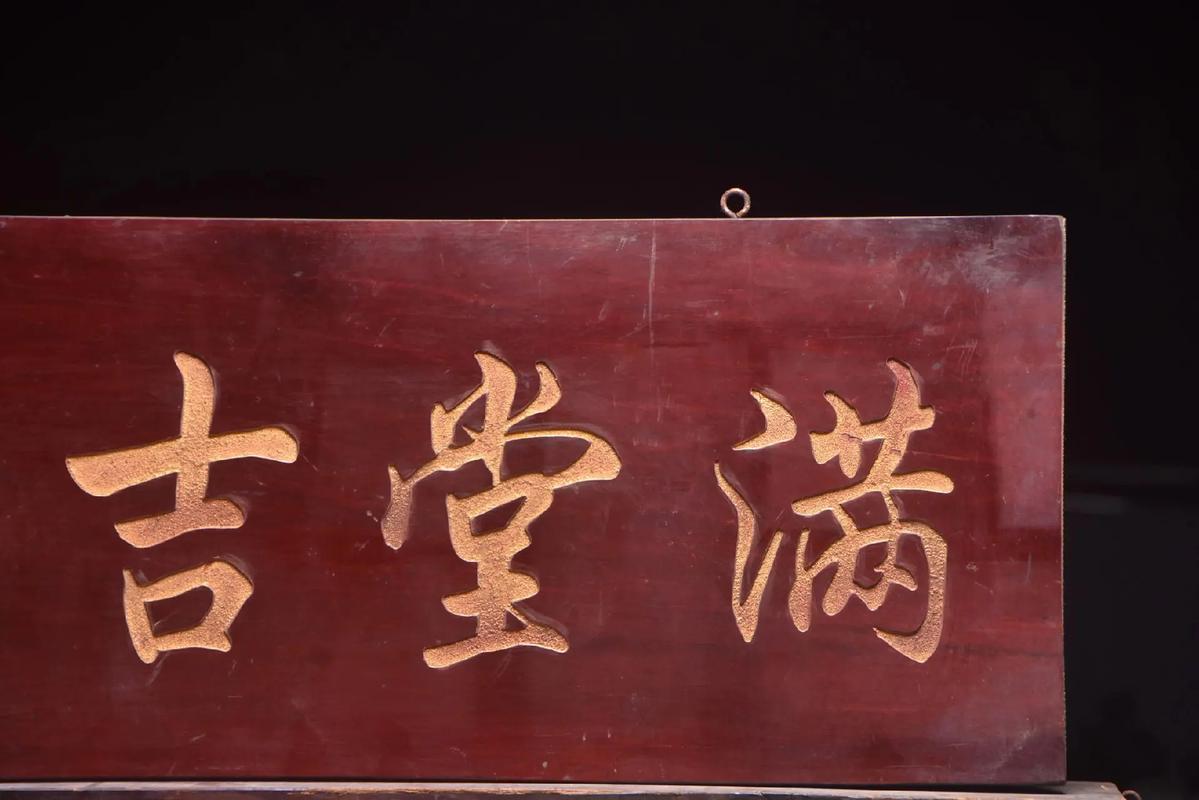 满堂吉